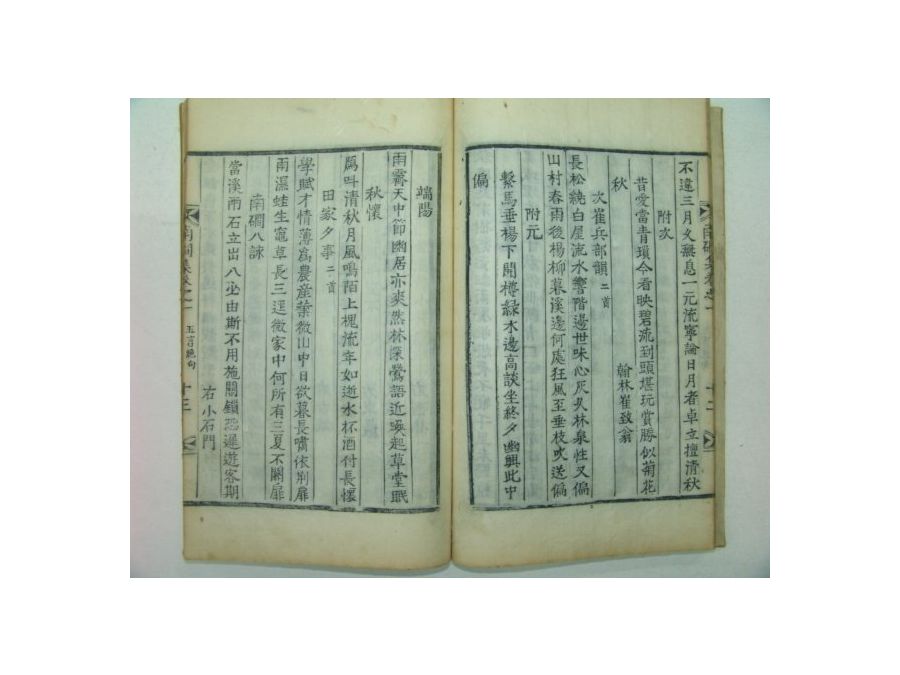 不違三月久無息一元流寧論日月者卓立擅清秋
附次
翰林崔致翁
昔愛當青瑣今看映碧流到頭堪玩賞勝似菊花
秋
次崔兵部韻二首
長松繞白屋流水響階邊世味心灰久林泉性又偏
山村春雨後楊柳暮溪邊何處狂風至垂枝吹送偏
附元
繫馬垂楊下開樽綠木邊高談坐終夕幽興此中
偏
端陽
雨霽天中節幽居亦爽然林深鶯語近喚起草堂眠
秋懷
爲呌清秋月風鳴陌上槐流年如逝水杯酒付長懷
田家夕事二首
學賦才情薄爲農産業微山中日欲暮長嘯依荊扉
雨濕蛙生竈草長三逕微家中何所有三夏不關扉
南磵八詠
當溪兩石立出入必由斯不用施關鎖恐遲遊客期
右小石門
南磵集卷之一
五言絶句
十三